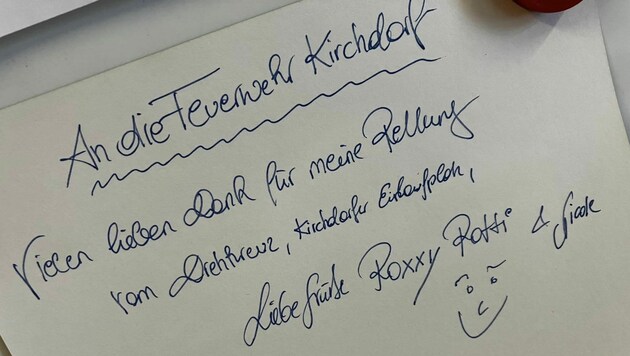 An die Feuerwehr Kirchdorf
Vielen lieben Dank für meine Rettung
vom Drehkreuz, Kirchdorfer Einkaufsplatz,
Liebe Grüße Roxxy Rotti & Nicole